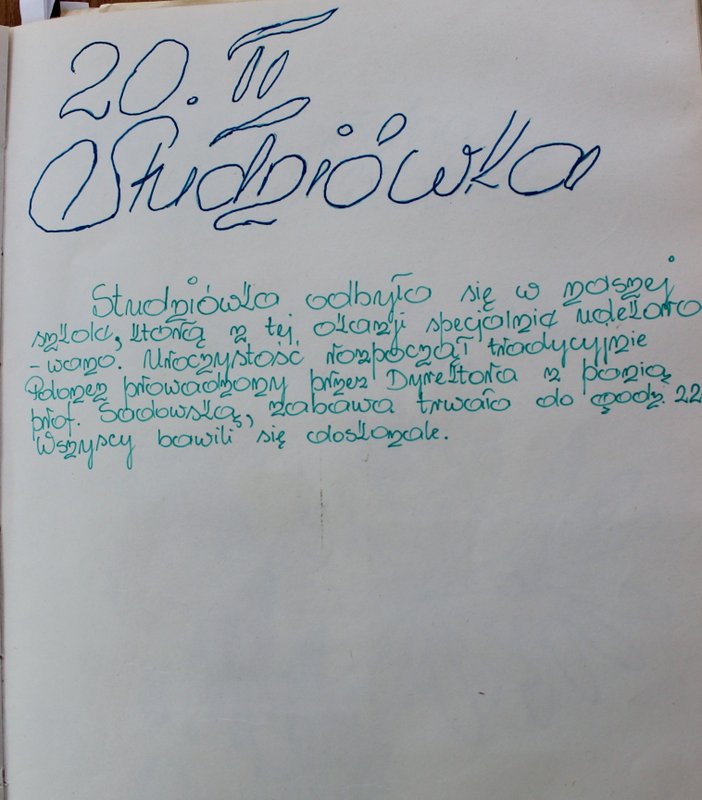 20. II
Studniówka
Studniówka odbyło się w naszej
szkole, którą z tej okazji specjalnie udekoro
-wano. Uroczystość rozpoczął tradycyjnie
Polonez prowadzony przez Dyrektora z panią
prof. Sadowską, zabawa trwało do godz. 22
Wszyscy bawili się doskonale.